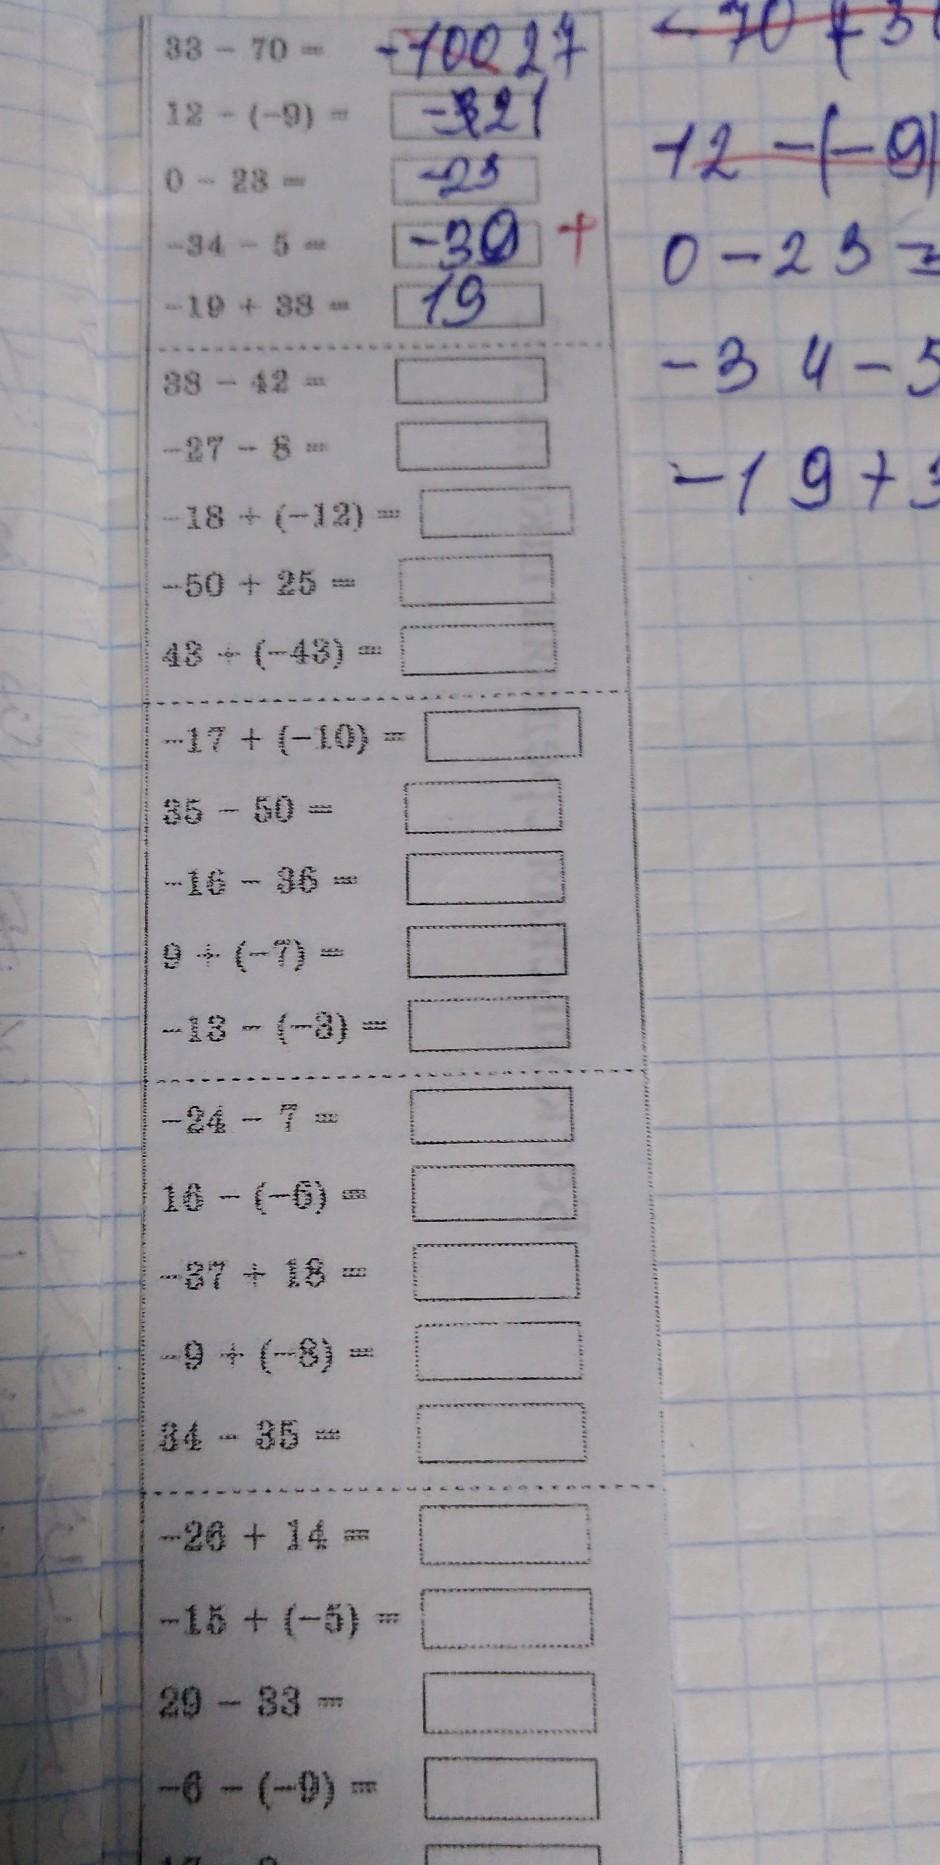 33 - 70 = -100 27
12 - (-9) = 21
0 - 23 = -23
-34 - 5 = -39 +
-19 + 38 = 19
38 - 42 =
-27 - 8 =
-18 + (-12) =
-50 + 25 =
43 + (-43) =
-17 + (-10) =
35 - 50 =
-16 - 36 =
9 + (-7) =
-13 - (-3) =
-24 - 7 =
16 - (-6) =
-37 + 18 =
-9 + (-8) =
34 - 35 =
-26 + 14 =
-15 + (-5) =
29 - 33 =
-6 - (-9) =
-70 + 3
12 - (-9)
0 - 23 =
-34 - 5
-19 + 3